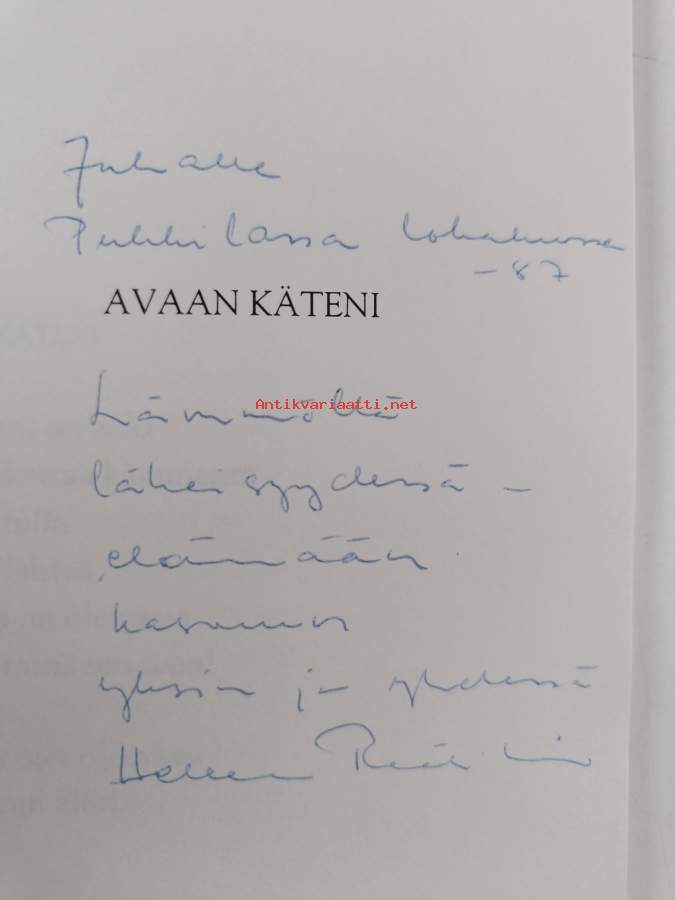 Juhalle
Pulkkilassa lokakuussa
-87
AVAAN KÄTENI
Antikvariaatti.net
Lämmöllä
läheisyydessä –
elämään
kasvamme
yksin ja yhdessä